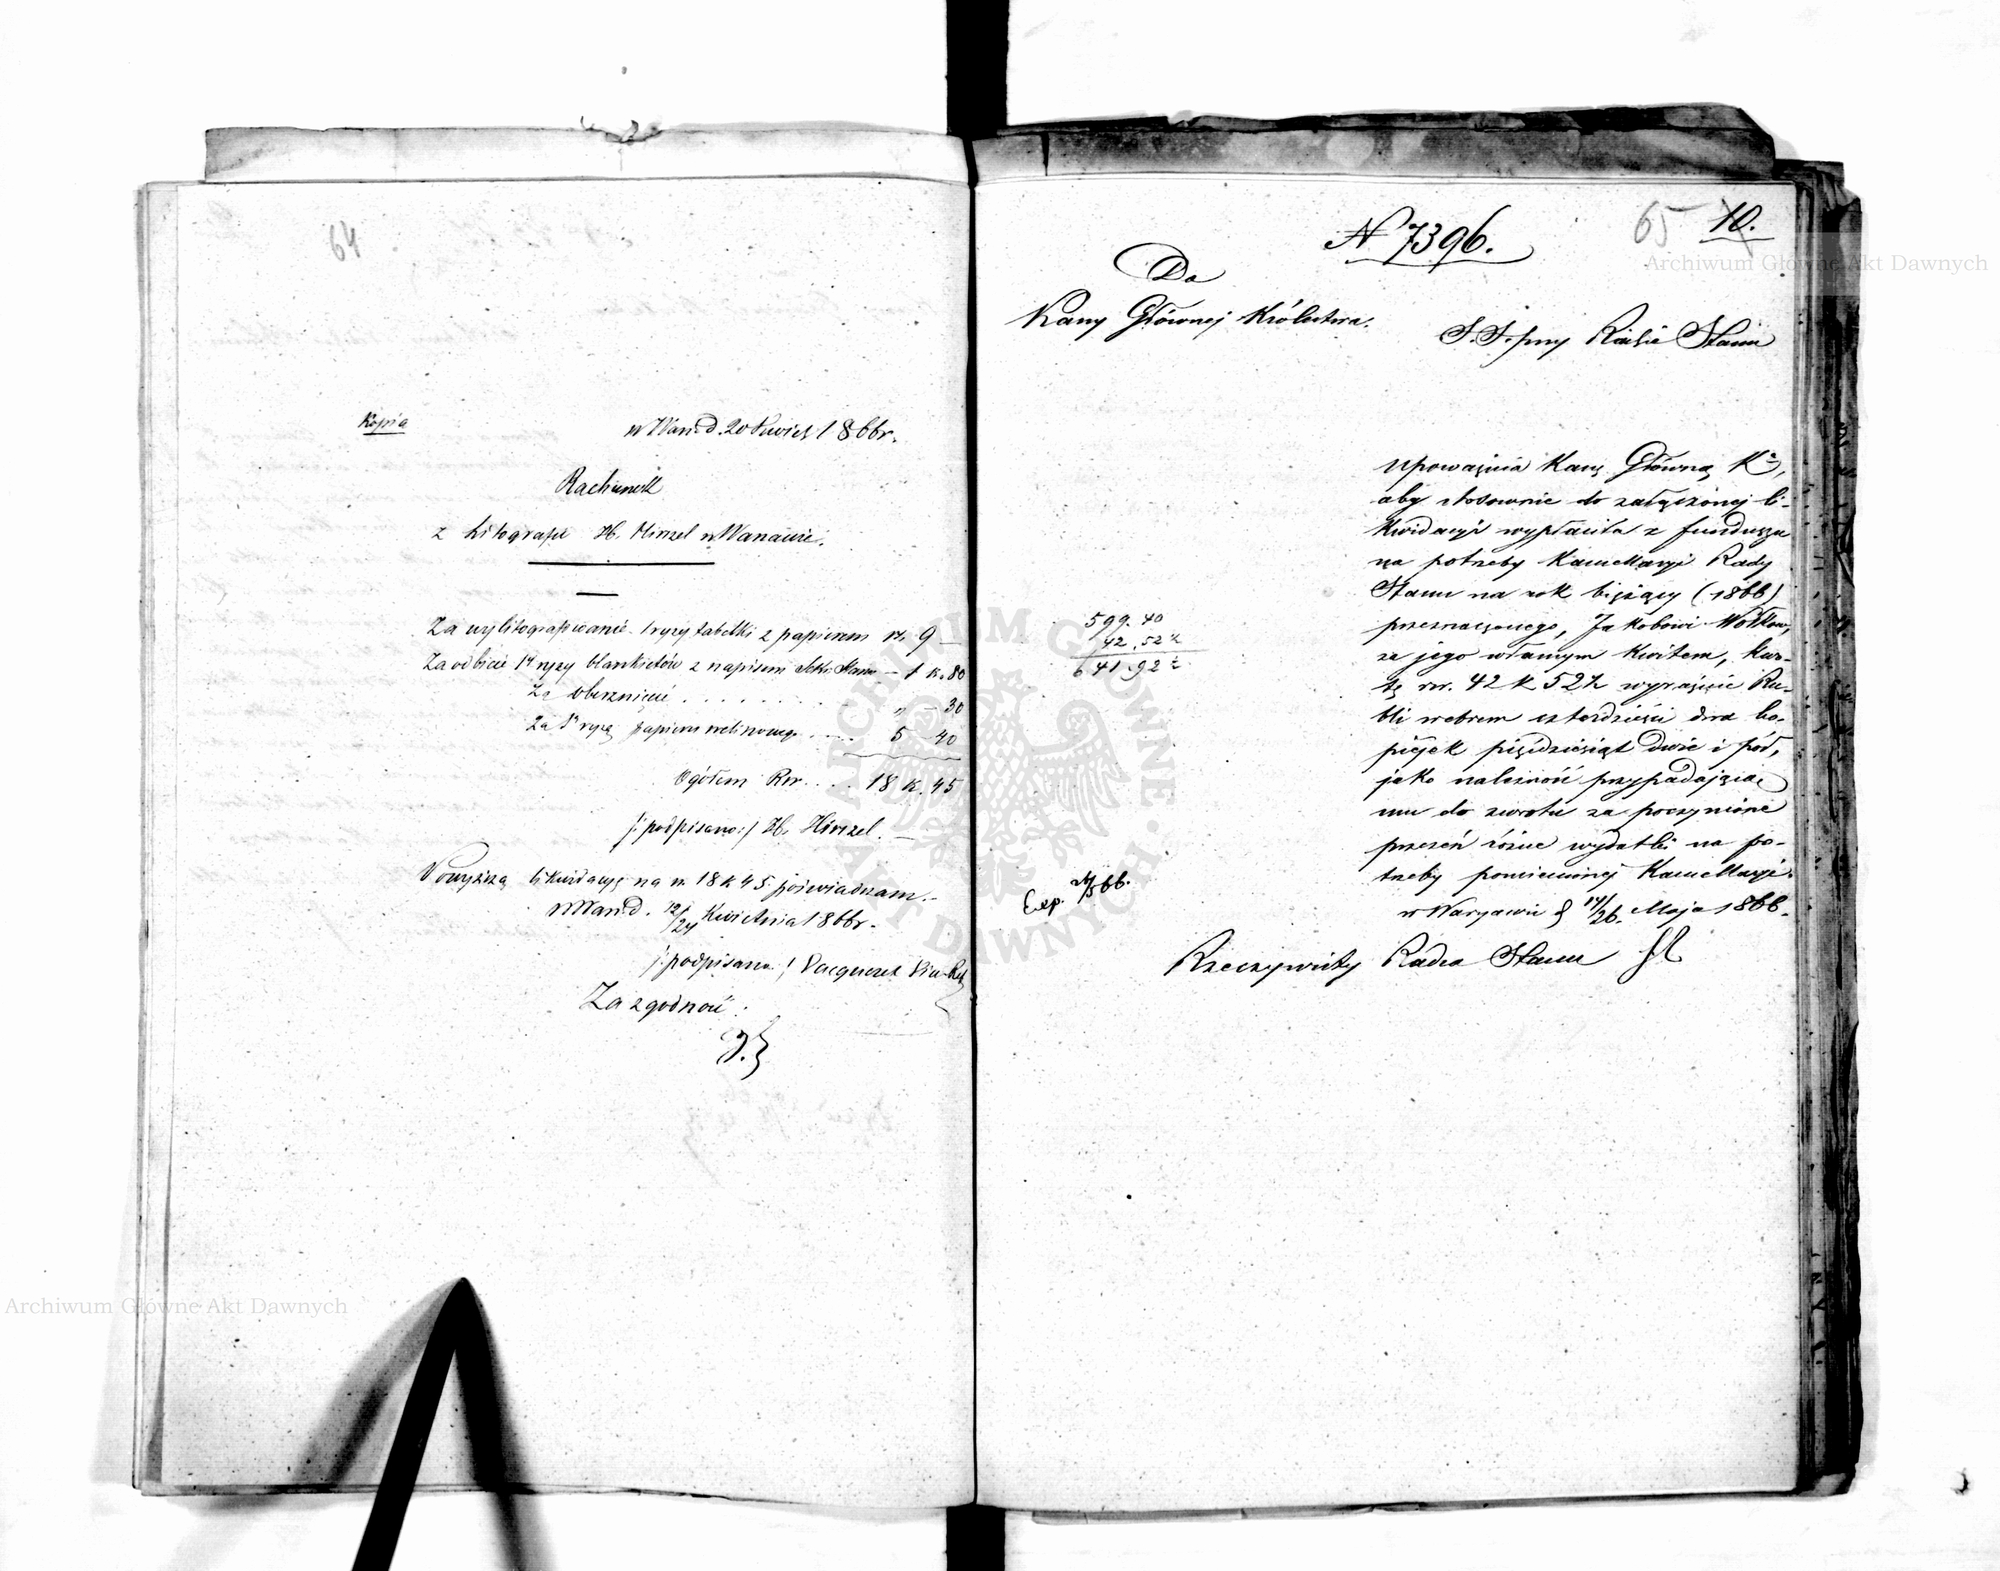 64
Kopia
w Warsz. d. 20 Kwiet 1866 r.
Rachunek
z Litografii H. Hirszel w Warszawie.
Za wylitografowanie 1 ryzy tabelki z papierem rs. 9 —
Za odbicie 1ej ryzy blankietów z napisem Sekr. Stanu — 1 k. 80
Za oberznięcie . . . . . . . . „ — 30
Za 1ą ryzę papieru welinowego . . . . 5 — 40
Ogółem Rsr. . . . 18 k. 45
/: podpisano :/ H. Hirszel. —
Powyższą likwidacyę na rs. 18 k 45 poświadczam. —
w Warsz. d. 12/24 Kwietnia 1866 r. —
/: podpisano :/
Za zgodność :
65 10.
N 7396.
Do
Kassy Głównej Królestwa.
S. S. przy Radzie Stanu
Upoważnia Kassę Główną Kr.,
aby stosownie do załączonej li-
kwidacyi wypłaciła z funduszu
na potrzeby Kancellaryi Rady
Stanu na rok bieżący (1866)
przeznaczonego, Jakobowi
za jego własnym kwitem, kwo-
tę rsr. 42 k 52½ wyraźnie Ru-
bli srebrem czterdzieści dwa ko-
piejek pięćdziesiąt dwie i pół,
jako należność przypadającą
mu do zwrotu za poczynione
przezeń różne wydatki na po-
trzeby pomienionej Kancellaryi.
w Warszawie d 14/26. Maja 1866.
Rzeczywisty Radca Stanu
599. 40
42. 52½
641. 92½
Exp. 26/5 66.
Archiwum Główne Akt Dawnych
Archiwum Główne Akt Dawnych
ARCHIWUM GŁÓWNE AKT DAWNYCH